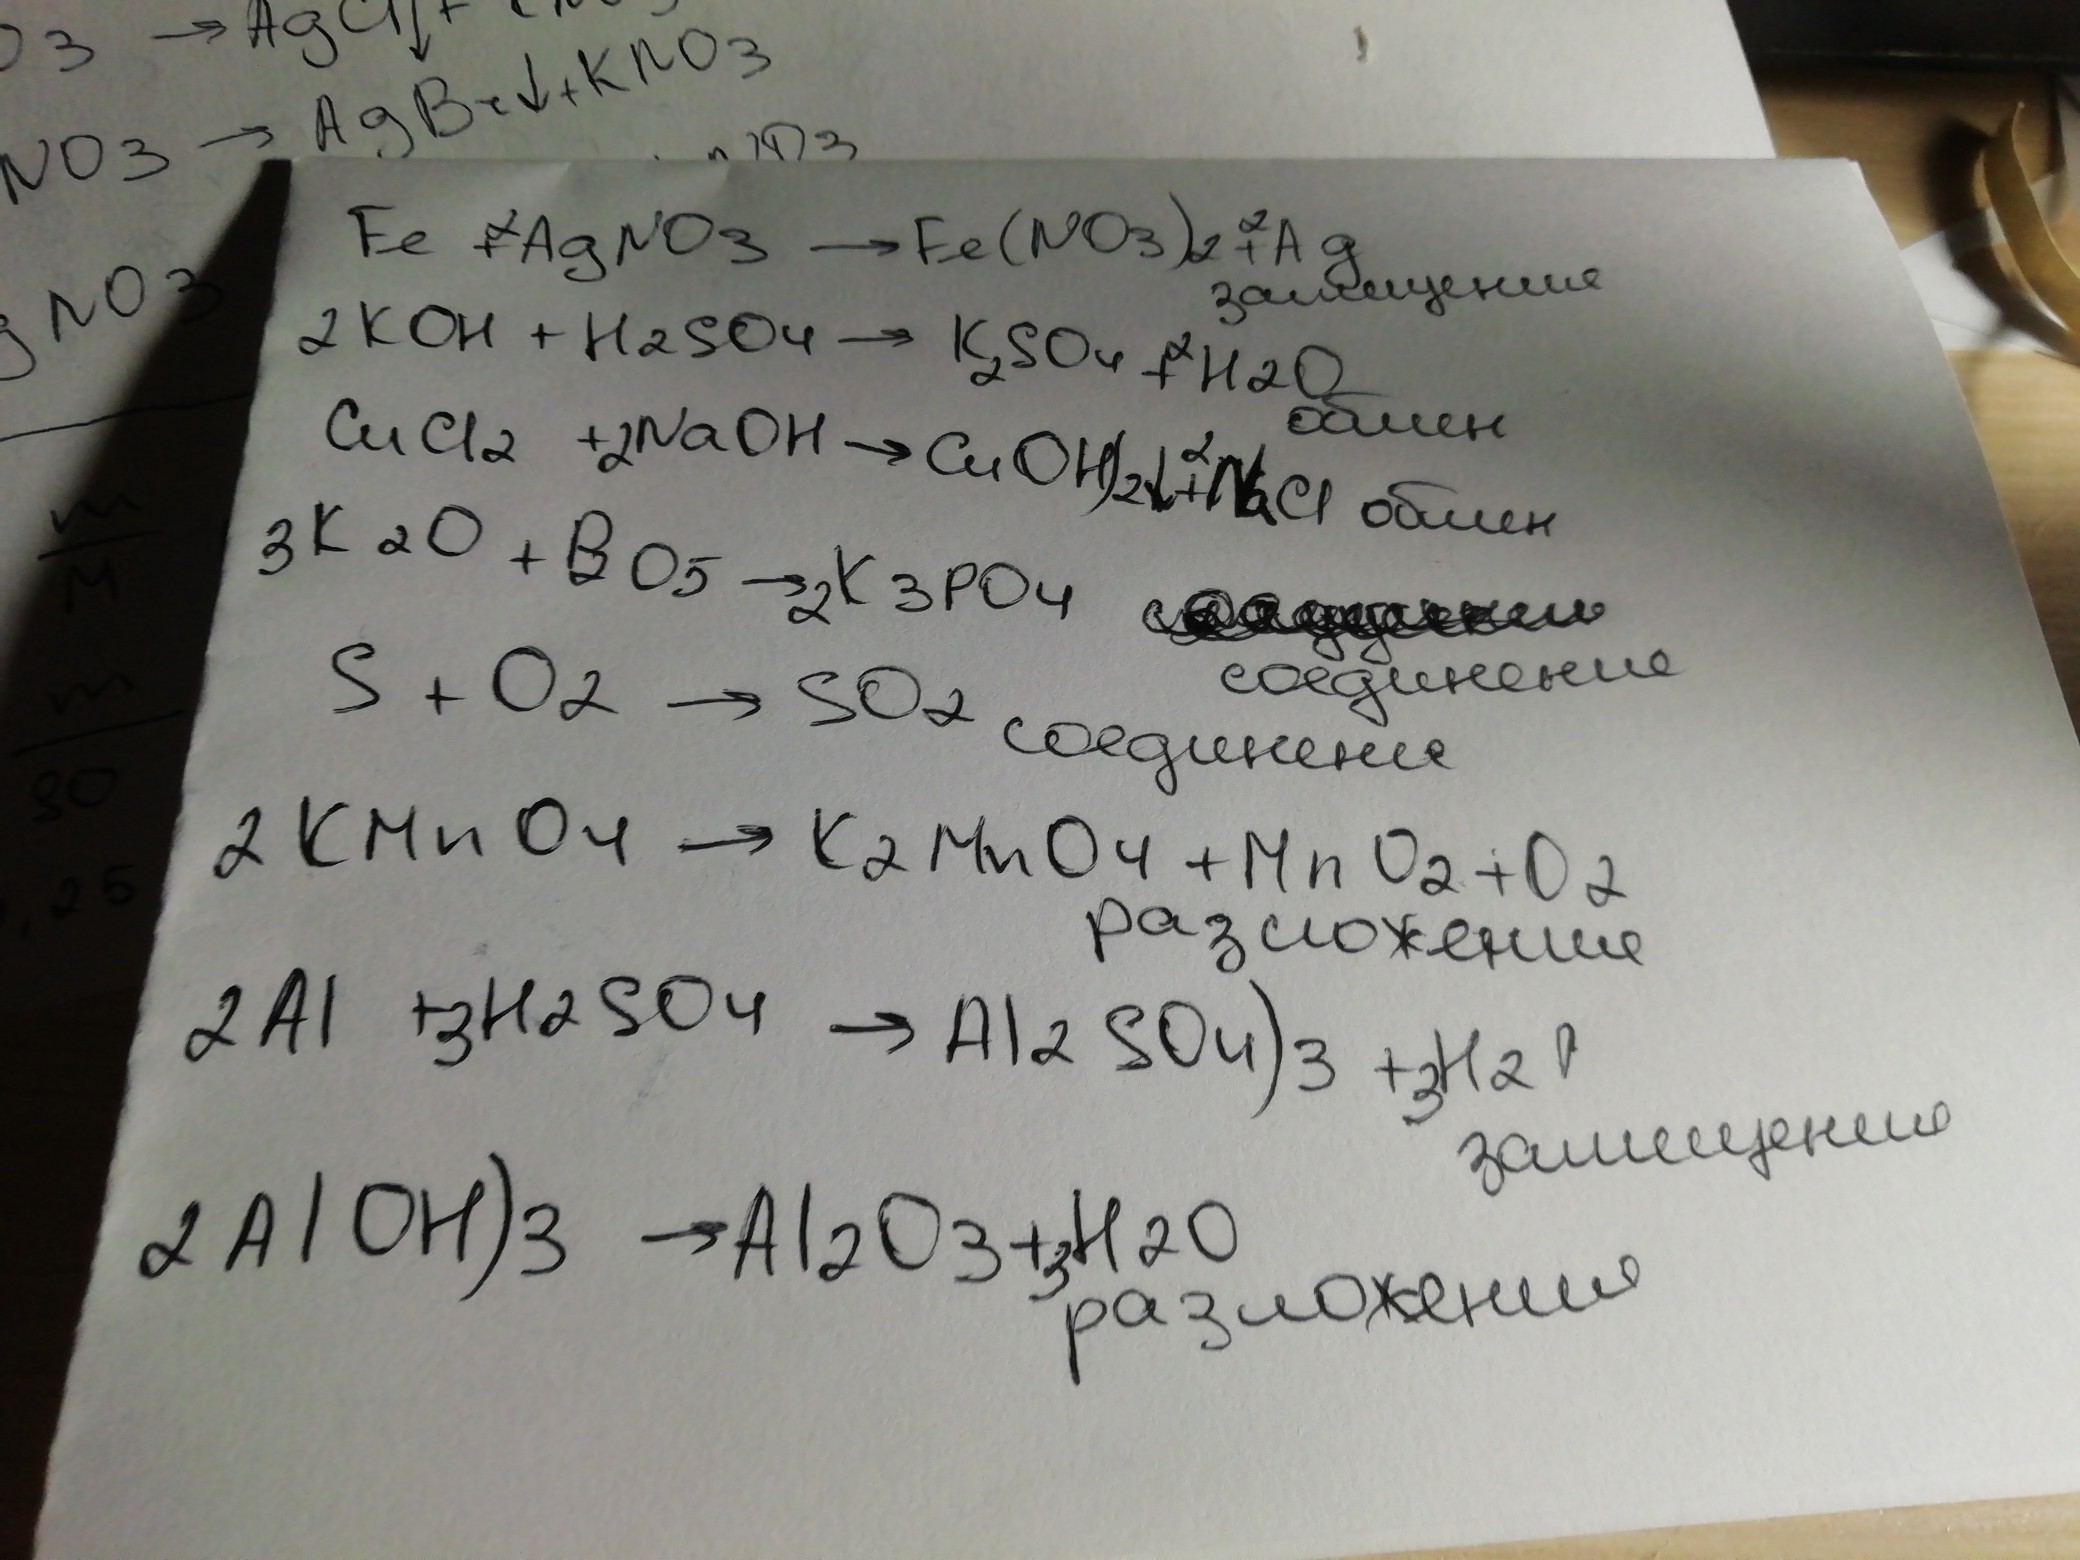 O3 → AgCl↓ +
NO3 → AgBr↓ + KNO3
NO3
gNO3
Fe + 2AgNO3 → Fe(NO3)2 + 2Ag
замещение
2KOH + H2SO4 → K2SO4 + 2H2O
обмен
CuCl2 + 2NaOH → CuOH)2↓ + 2NaCl обмен
3K2O + P2O5 → 2K3PO4
соединение
S + O2 → SO2 соединение
2KMnO4 → K2MnO4 + MnO2 + O2
разложение
2Al + 3H2SO4 → Al2SO4)3 + 3H2↑
замещение
2AlOH)3 → Al2O3 + 3H2O
разложение
m
M
m
80
,25